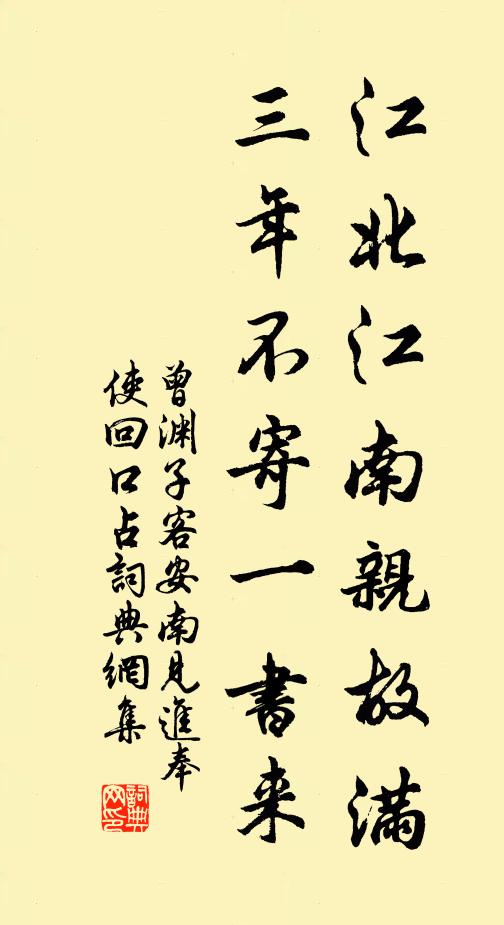 江北江南親故滿
三年不寄一書来
曾渊子客安南見進奉
使回口占詞典網集
詞典網印